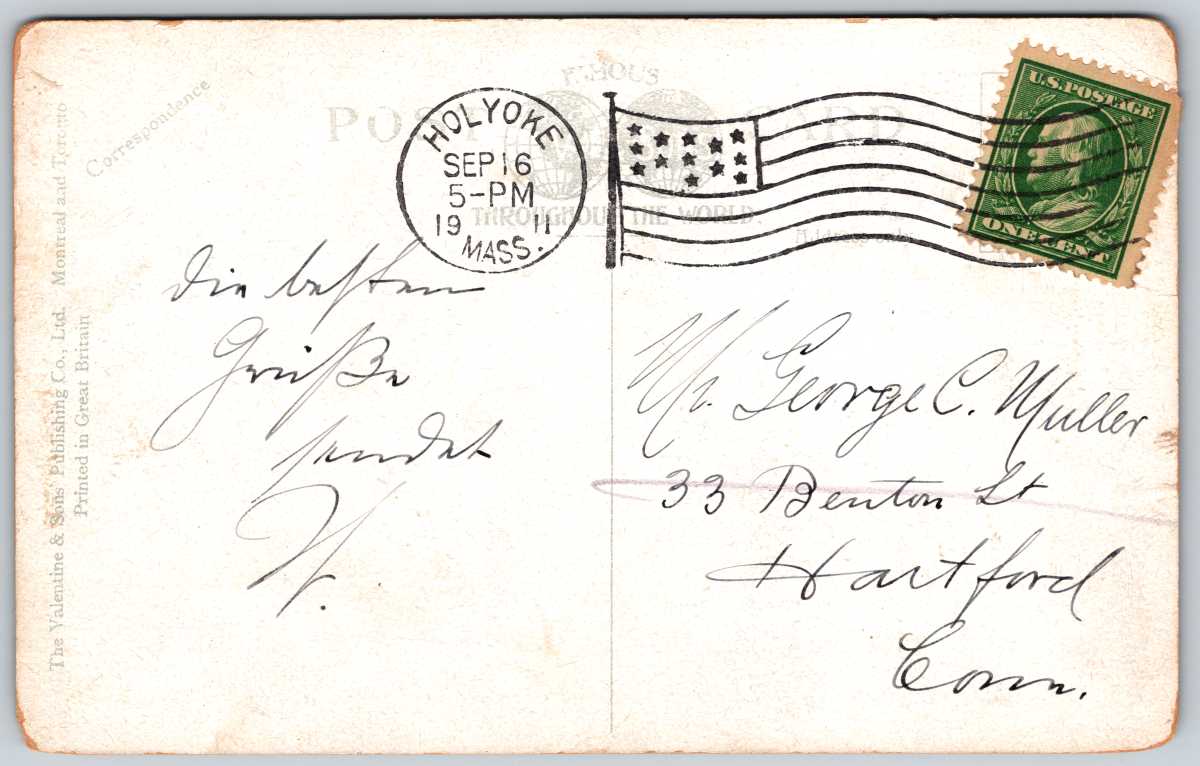 Correspondence
FAMOUS
POST CARD
THROUGHOUT THE WORLD.
Address only
HOLYOKE
SEP 16
5-PM
19 11
MASS.
U.S. POSTAGE
ONE CENT
die besten
Grüße
sendet
Mr. George C. Muller
33 Benton St
Hartford
Conn.
The Valentine & Sons' Publishing Co., Ltd. Montreal and Toronto
Printed in Great Britain